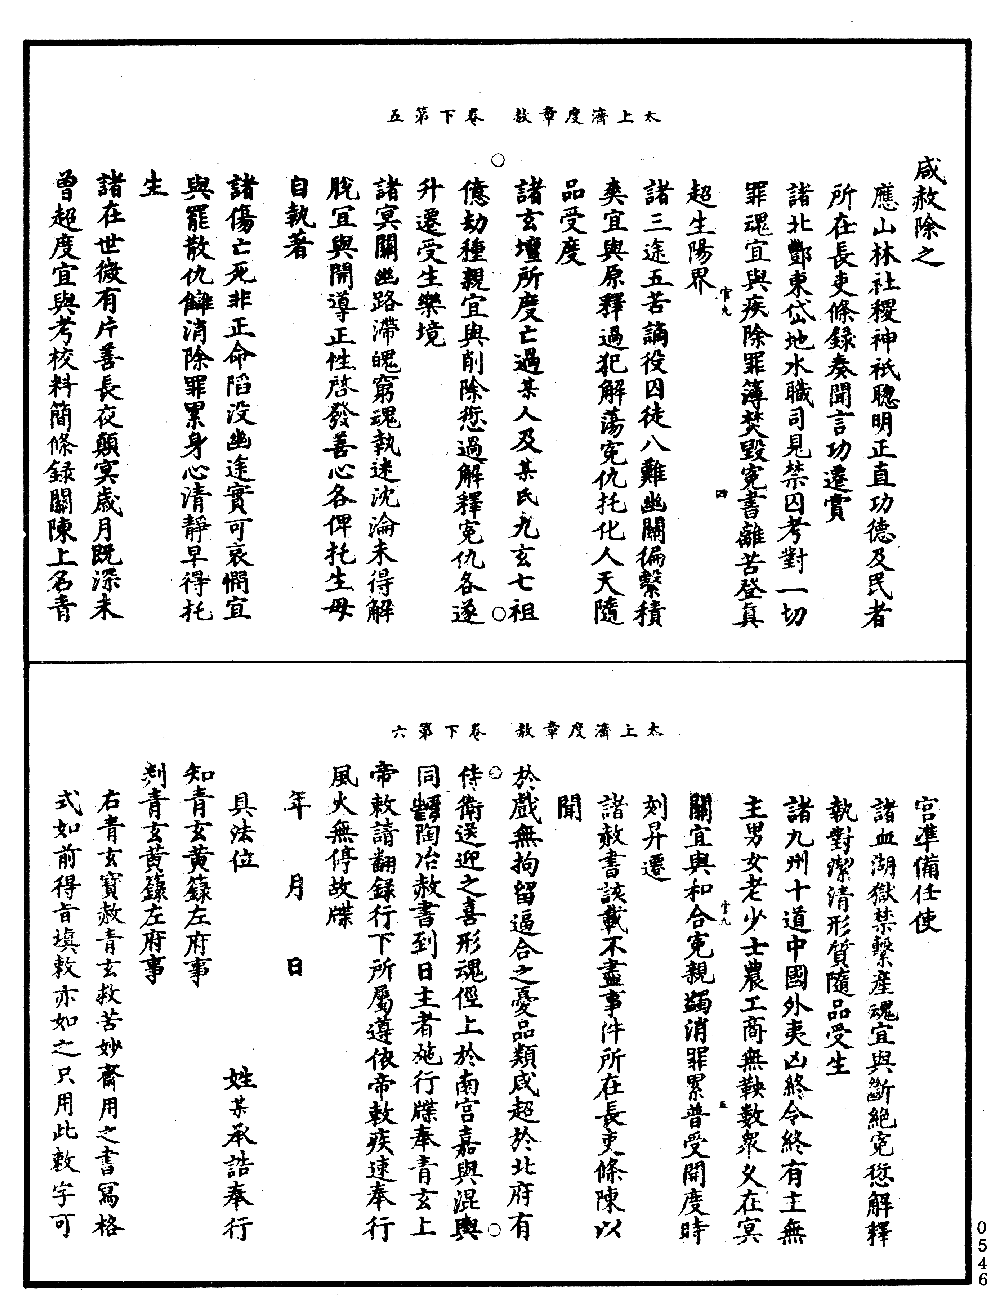 太上濟度章赦　卷下第五
咸赦除之
應山林社稷神祇聰明正直功德及民者
所在長吏條錄奏聞言功遷賞
諸北酆東岱地水職司見禁囚考對一切
罪魂宜與疾除罪簿焚毀寃書離苦登真
超生陽界
諸三途五苦謫役囚徒八難幽關徧繫積
爽宜與原釋過犯解蕩寃仇托化人天隨
品受度
諸玄壇所度亡過某人及某氏九玄七祖
億劫種親宜與削除愆過解釋寃仇各遂
升遷受生樂境
諸冥關幽路滯魄窮魂執迷沈淪未得解
脫宜與開導正性啓發善心各俾托生毋
自執著
諸傷亡死非正命陷没幽途實可哀憫宜
與罷散仇讎消除罪累身心清靜早得托
生
諸在世微有片善長夜顛寘歲月既深未
曾超度宜與考校料簡條錄關陳上名青
太上濟度章赦　卷下第六
宮準備任使
諸血湖獄禁繫產魂宜與斷絕寃愆解釋
執對潔清形質隨品受生
諸九州十道中國外夷凶終令終有主無
主男女老少士農工商無鞅數眾乂在冥
關宜與和合寃親蠲消罪累普受開度時
刻昇遷
諸赦書該載不盡事件所在長吏條陳以
聞
於戲無拘留逼合之憂品類咸超於北府有
侍衛送迎之喜形魂徑上於南宮嘉與混輿
同歸陶冶赦書到日主者施行牒奉青玄上
帝敕請翻錄行下所屬遵依帝敕疾速奉行
風火無停故牒
年　月　日
具法位　姓某承誥奉行
知青玄黄籙左府事
判青玄黄籙左府事
右青玄寶赦青玄救苦妙齋用之書寫格
式如前得旨填敕亦如之只用此敕字可
0546